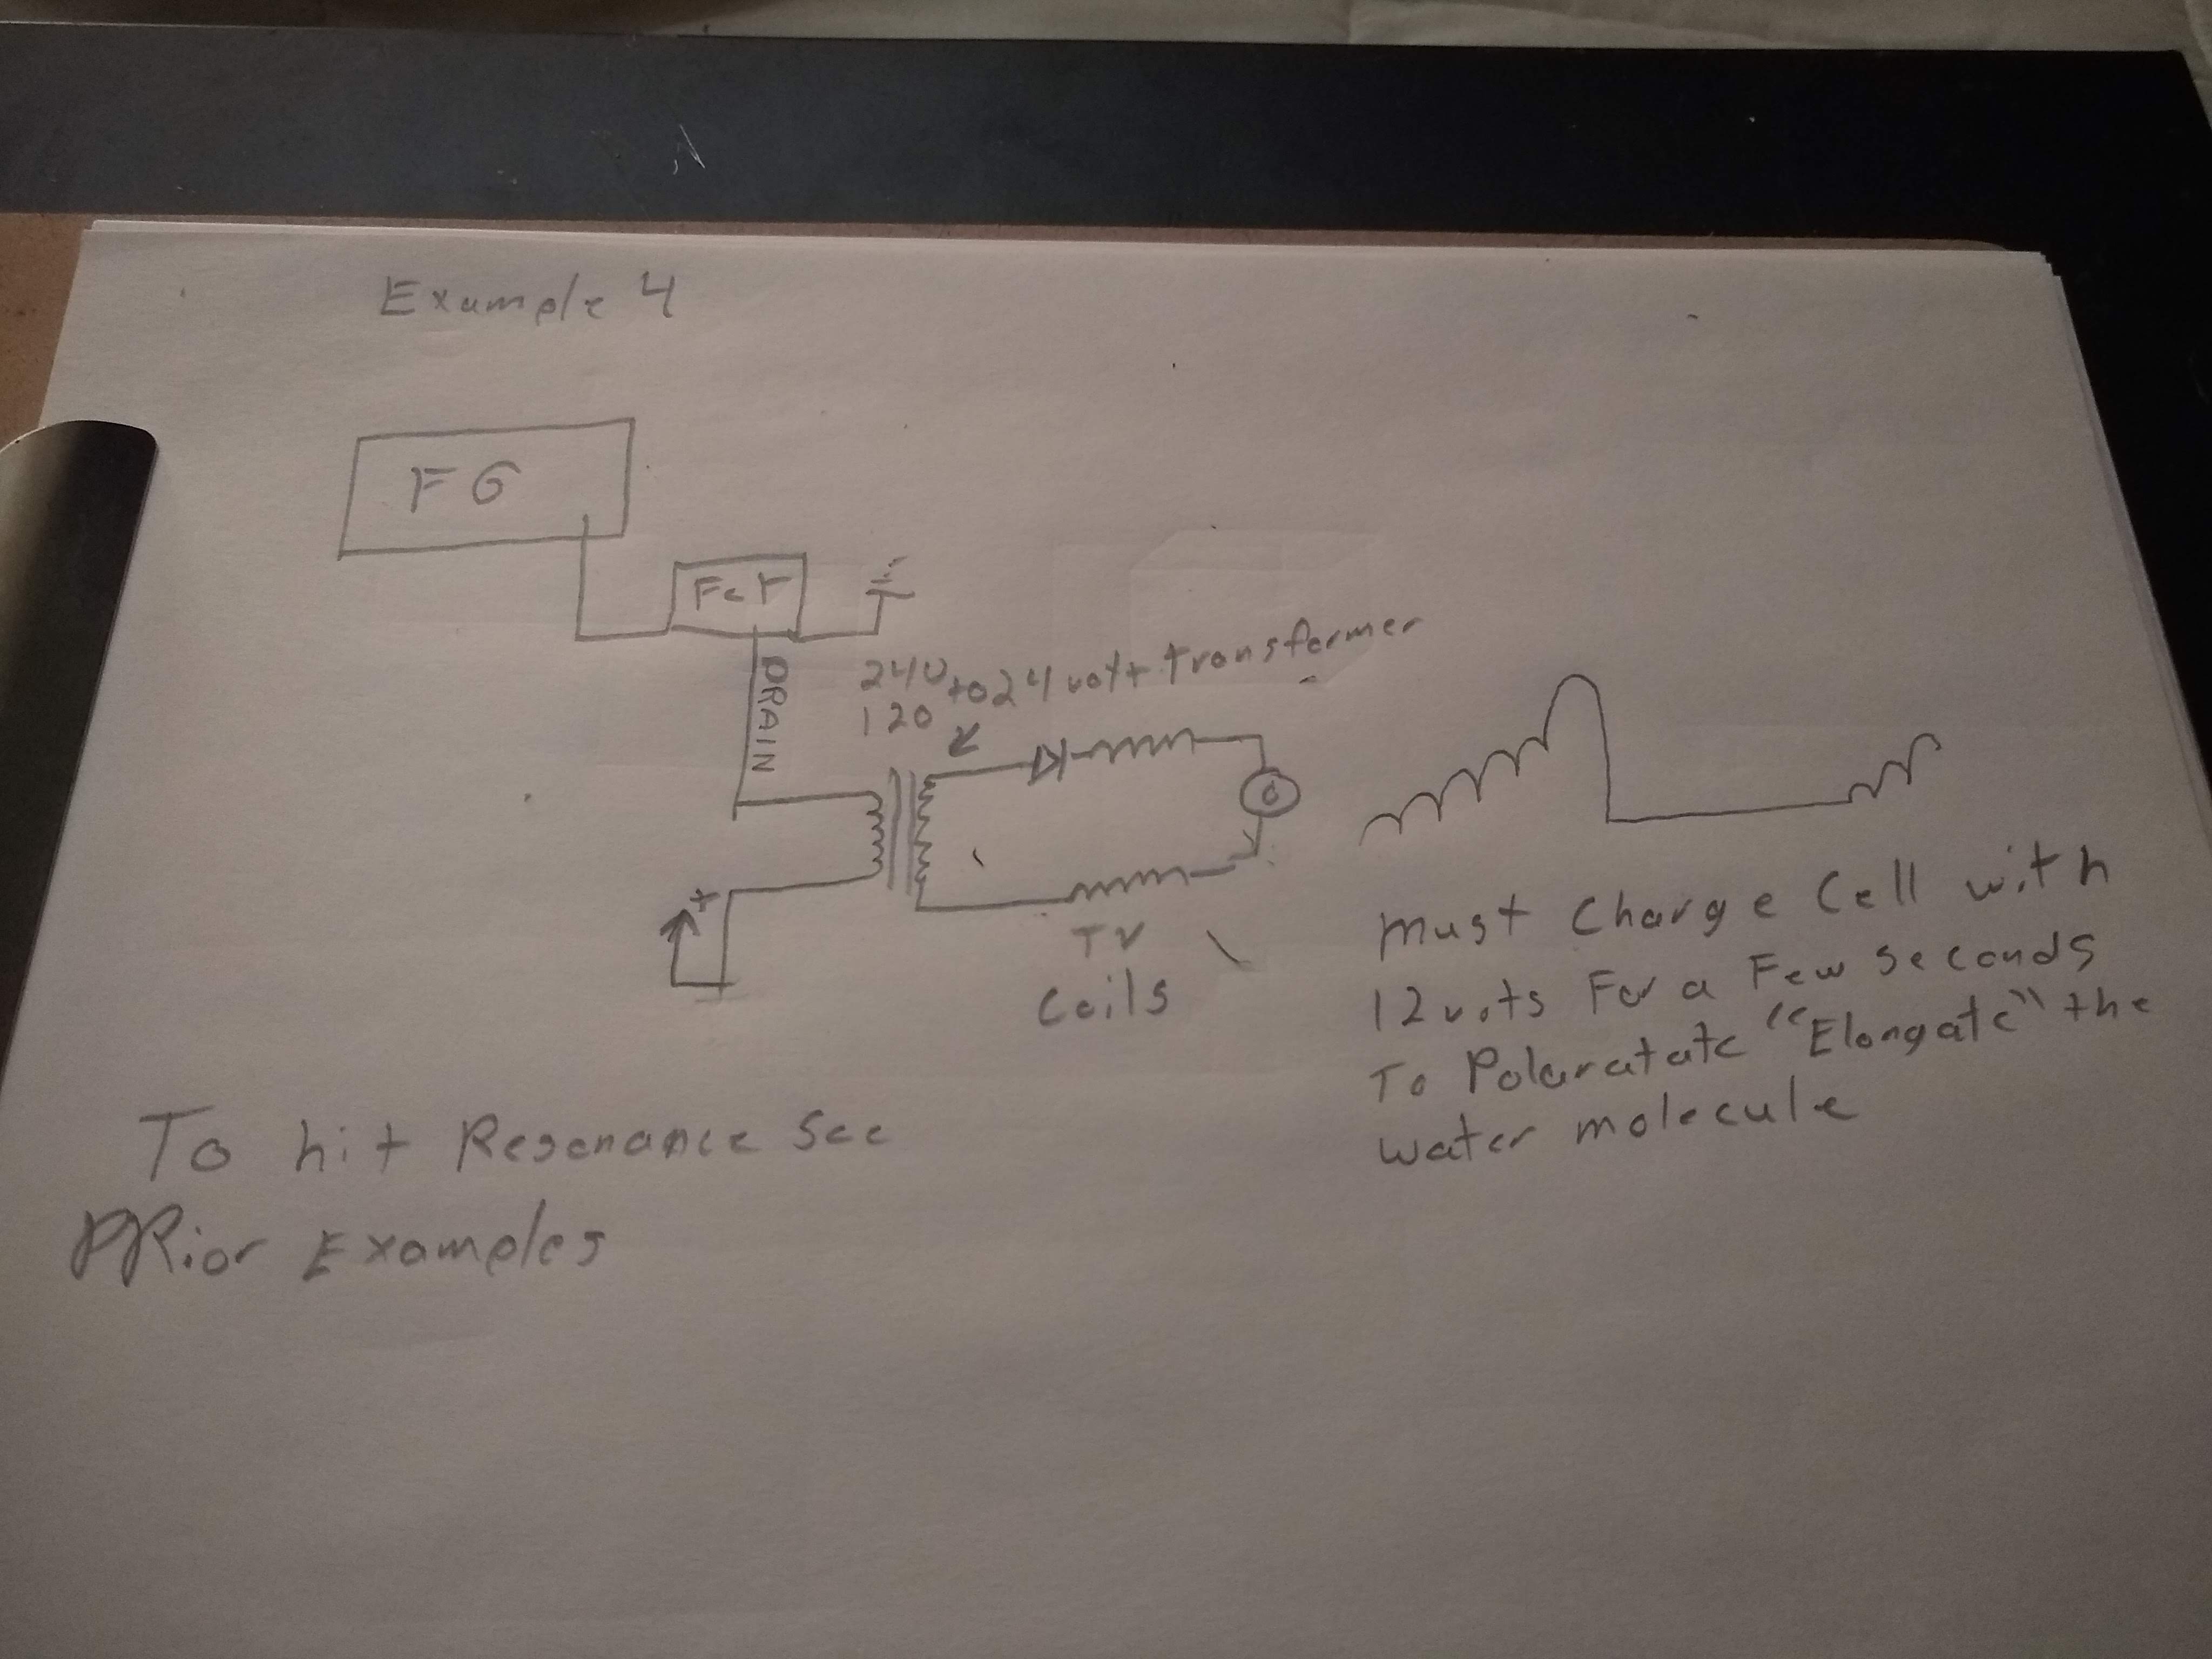 Example 4
FG
FeT
DRAIN
240 to 24 volt transformer
120
+
c
TV
Coils
must Charge Cell with
12 vots For a Few seconds
To Polaratate "Elongate" the
water molecule
To hit Resonance See
PRior Examples